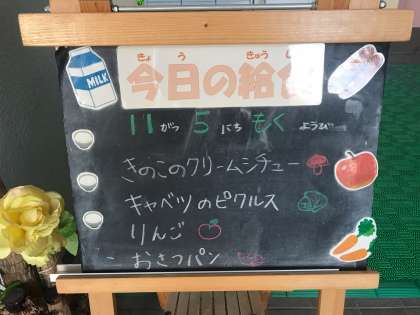 きょう きゅうし
今日の給食
MILK
11がつ 5にち もくようび
きのこのクリームシチュー
キャベツのピクルス
りんご
おさつパン